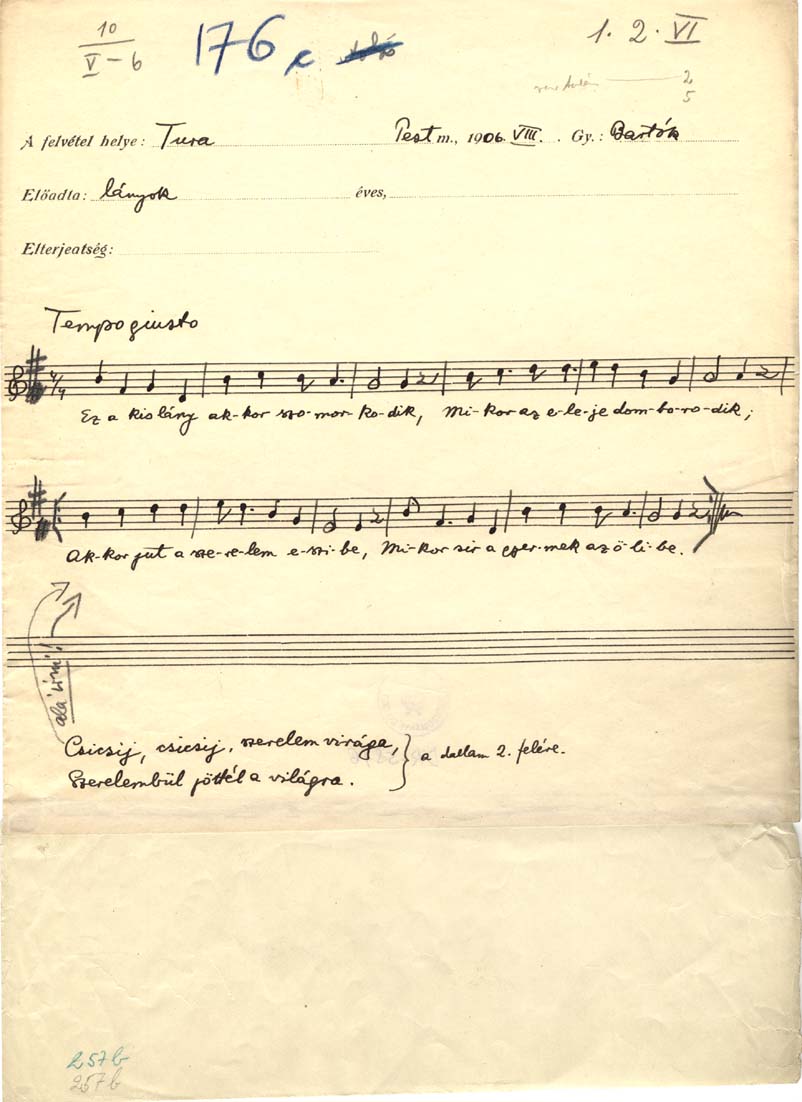 10
V-6
176 c
1. 2. VI
2
5
A felvétel helye: Tura Pest m., 1906. VIII. Gy.: Bartók
Előadta: lányok éves,
Elterjedtség:
Tempo giusto
4/4
Ez a kislány ak-kor szo-mor-ko-dik, Mi-kor az e-le-je dom-bo-ro-dik;
Ak-kor jut a sze-re-lem e-szi-be, Mi-kor sir a gyer-mek az ö-li-be.
alá írni!
Csicsij, csicsij, szerelem virága,
Szerelembül jöttél a világra. } a dallam 2. felére.
257b
257b